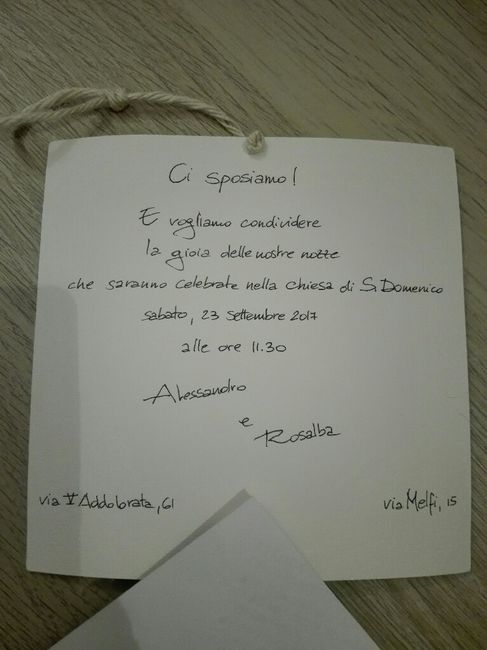 Ci sposiamo!
E vogliamo condividere
la gioia delle nostre nozze
che saranno celebrate nella chiesa di S. Domenico
sabato, 23 settembre 2017
alle ore 11.30
Alessandro
e
Rosalba
via V Addolorata, 61
via Melfi, 15